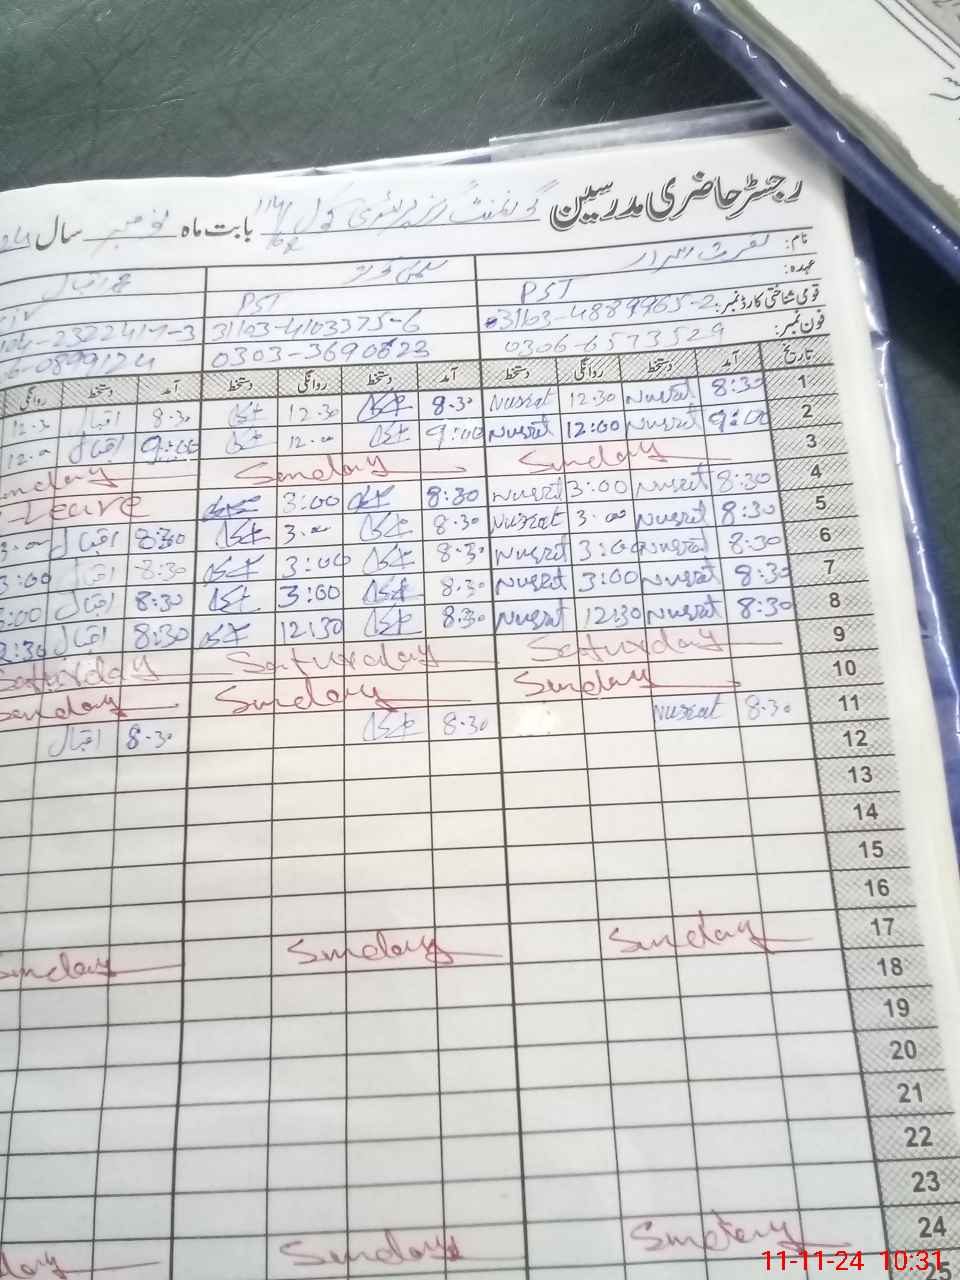 رجسٹر حاضری مدرسین گورنمنٹ گرلز پرائمری سکول بابت ماہ نومبر سال
نام: نصرت
عہدہ: PST PST
قومی شناختی کارڈ نمبر: 31103-4889965-2 31103-4103375-6 2322417-3
فون نمبر: 0306-6573529 0303-3690823 6-0899124
تاریخ آمد دستخط روانگی دستخط آمد دستخط روانگی دستخط آمد دستخط روانگی
1 8:30 Nusrat 12:30 Nusrat 8.30 12.30 8.30 اقبال 12.30
2 9:00 Nusrat 12:00 Nusrat 9:00 12.00 9:00 اقبال 12.00
3 Sunday Sunday Sunday
4 8:30 Nusrat 3:00 Nusrat 8:30 3:00 Leave
5 8:30 Nusrat 3.00 Nusrat 8.30 3.00 8:30 اقبال 3.00
6 8:30 Nusrat 3:00 Nusrat 8.30 3:00 8:30 اقبال 3:00
7 8:30 Nusrat 3:00 Nusrat 8.30 3:00 8:30 اقبال 3:00
8 8:30 Nusrat 12:30 Nusrat 8.30 12:30 8:30 اقبال 12:30
9 Saturday Saturday Saturday
10 Sunday Sunday Sunday
11 8.30 Nusrat 8.30 8.30 اقبال
12
13
14
15
16
17 Sunday Sunday Sunday
18
19
20
21
22
23
24 Sunday Sunday
25
11-11-24 10:31